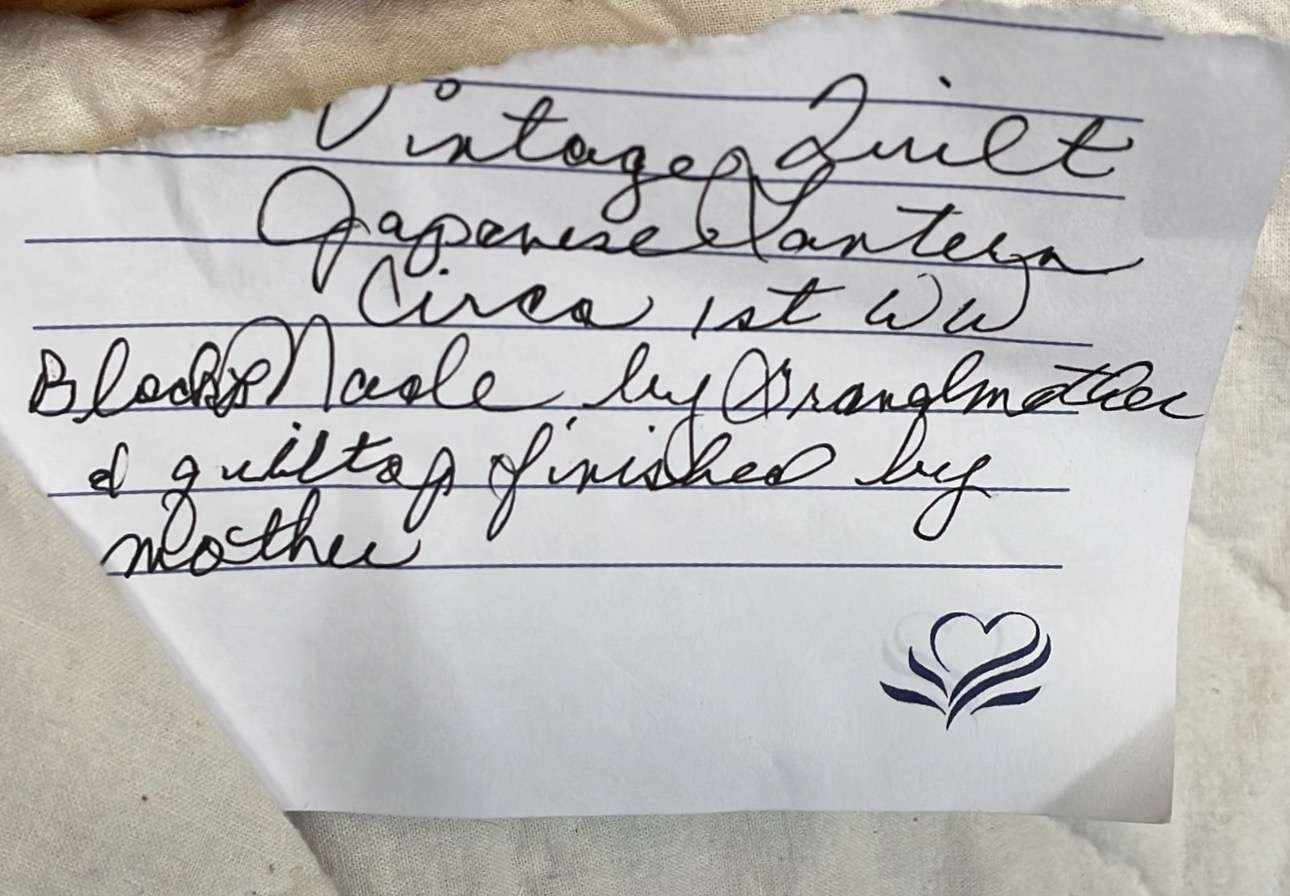 Vintage Quilt
Japanese Lantern
Circa 1st WW
Blocks Made by Grandmother
& quilt top finished by
Mother